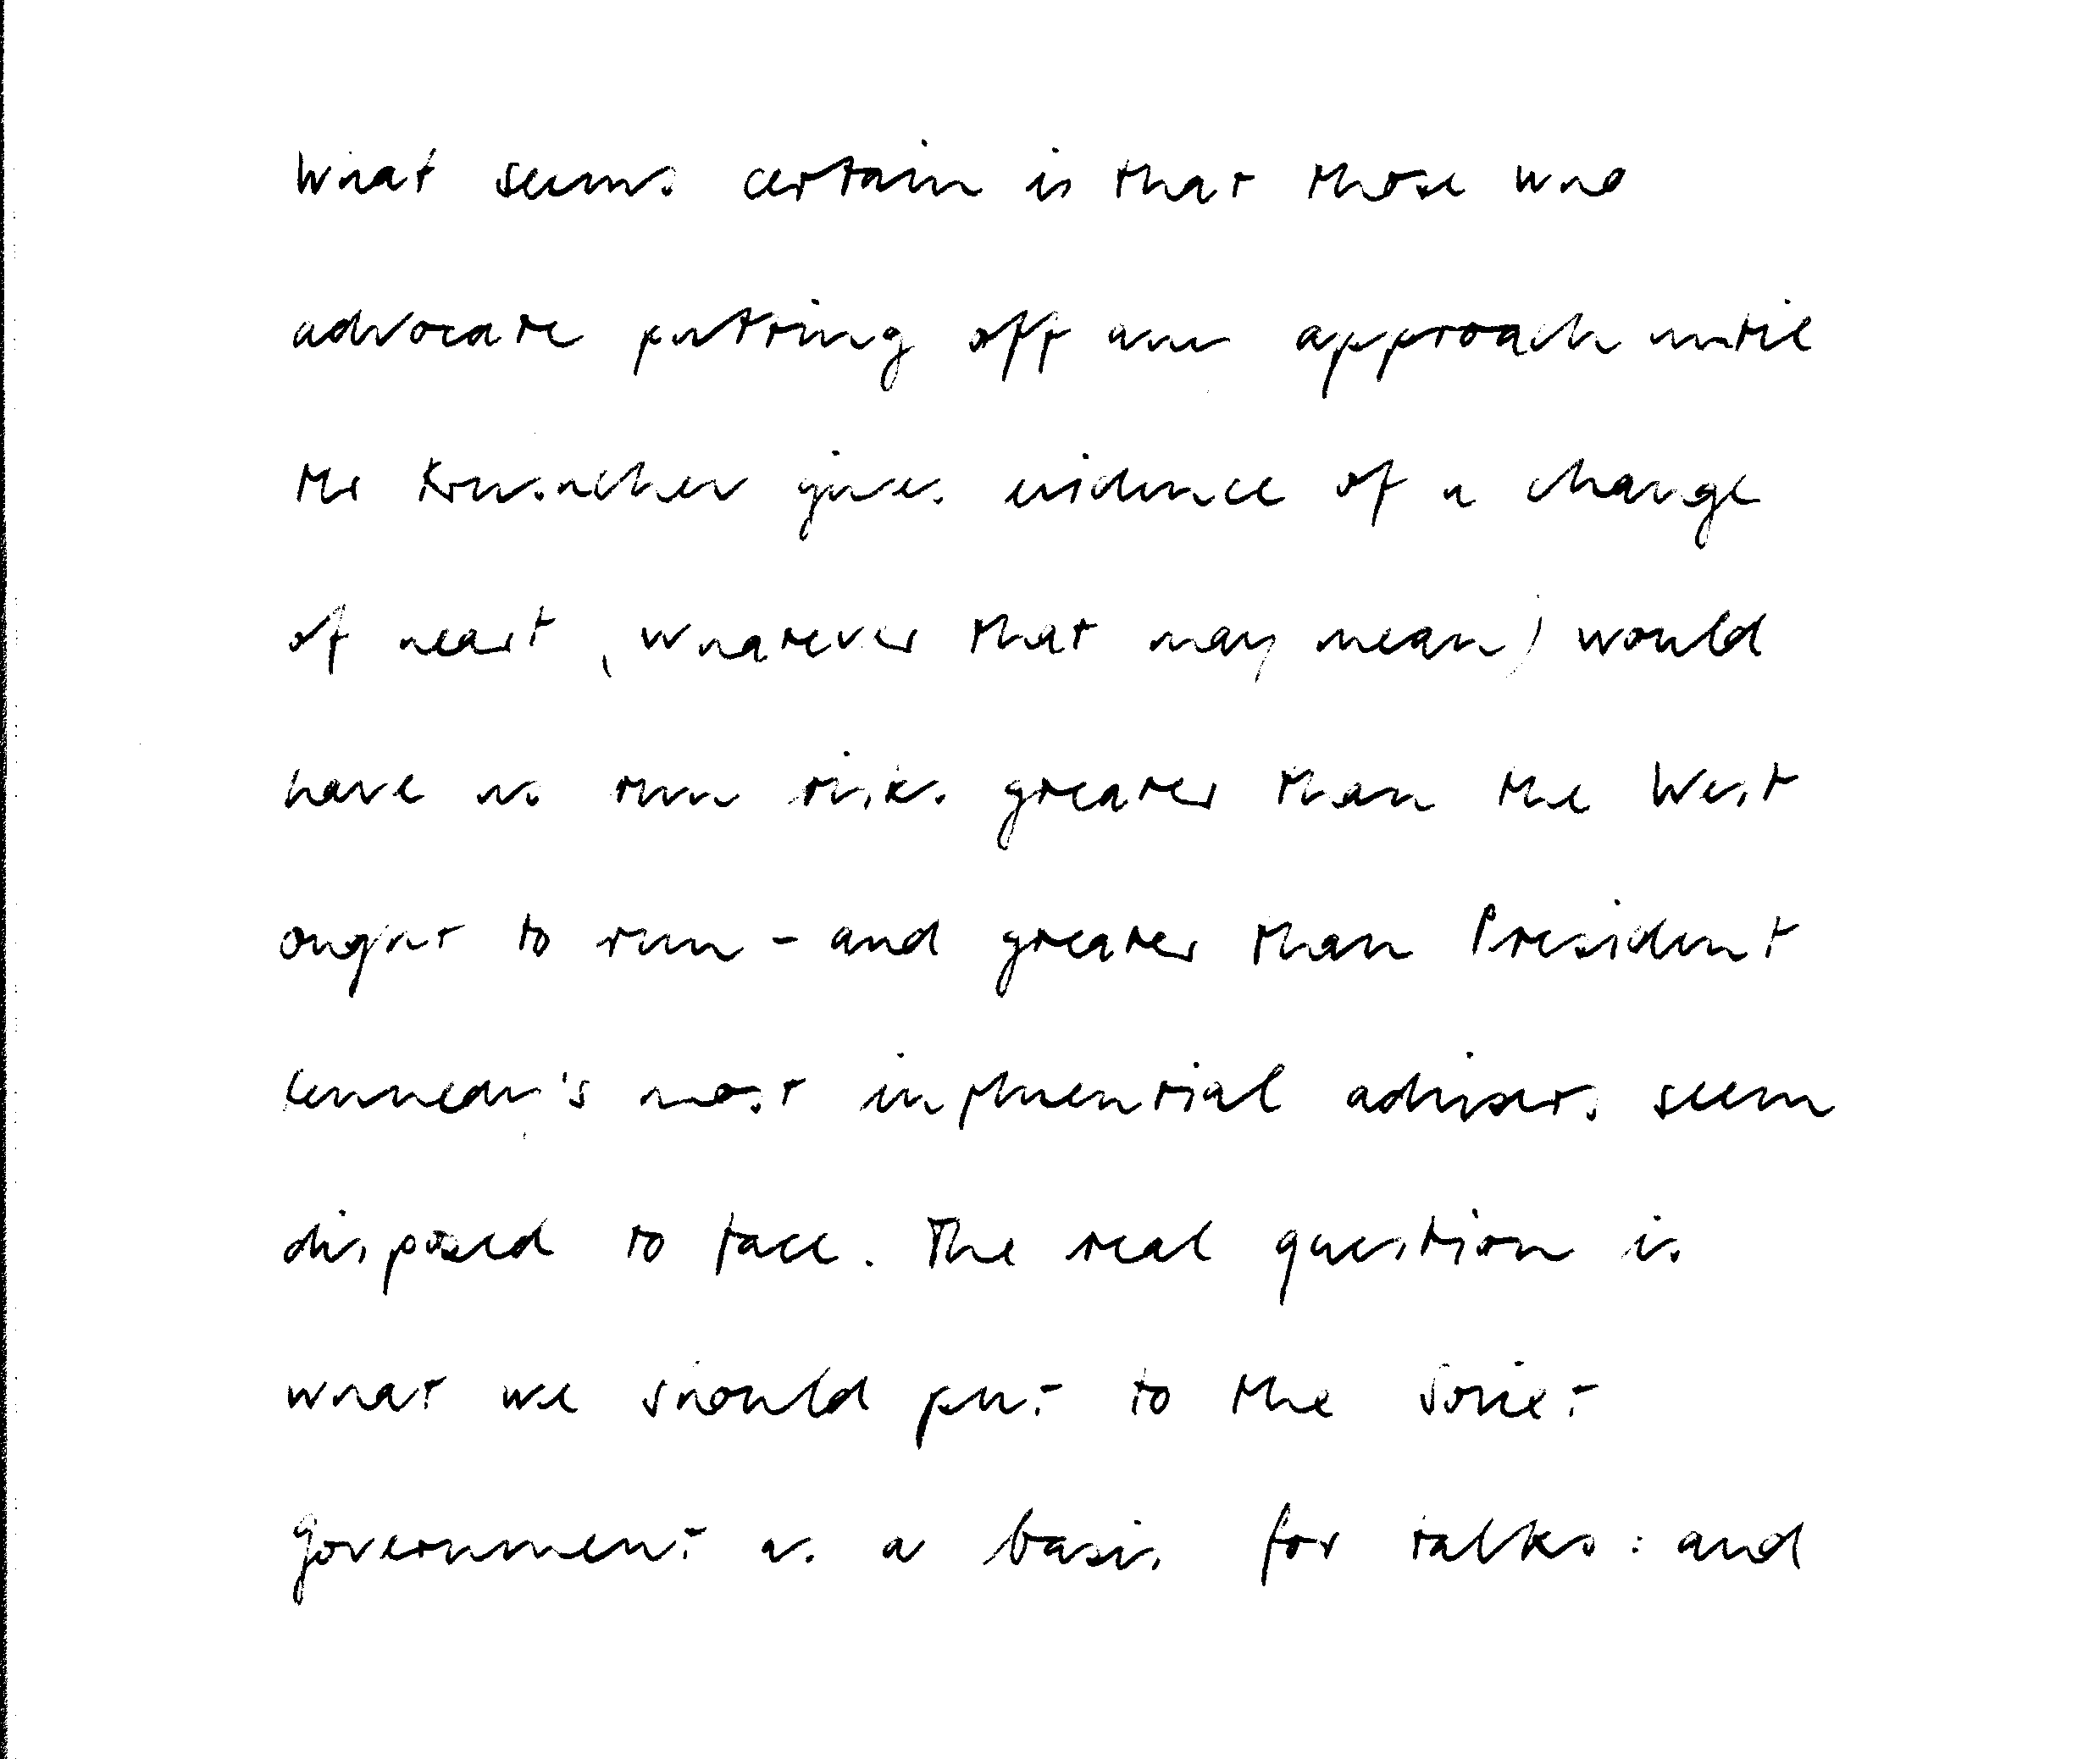 What seems certain is that those who
advocate putting off any approach until
Mr Krushchev gives evidence of a change
of heart (whatever that may mean) would
have us run risks greater than the West
ought to run - and greater than President
Kennedy's most influential advisers seem
disposed to face. The real question is
what we should put to the Soviet
Government as a basis for talks: and